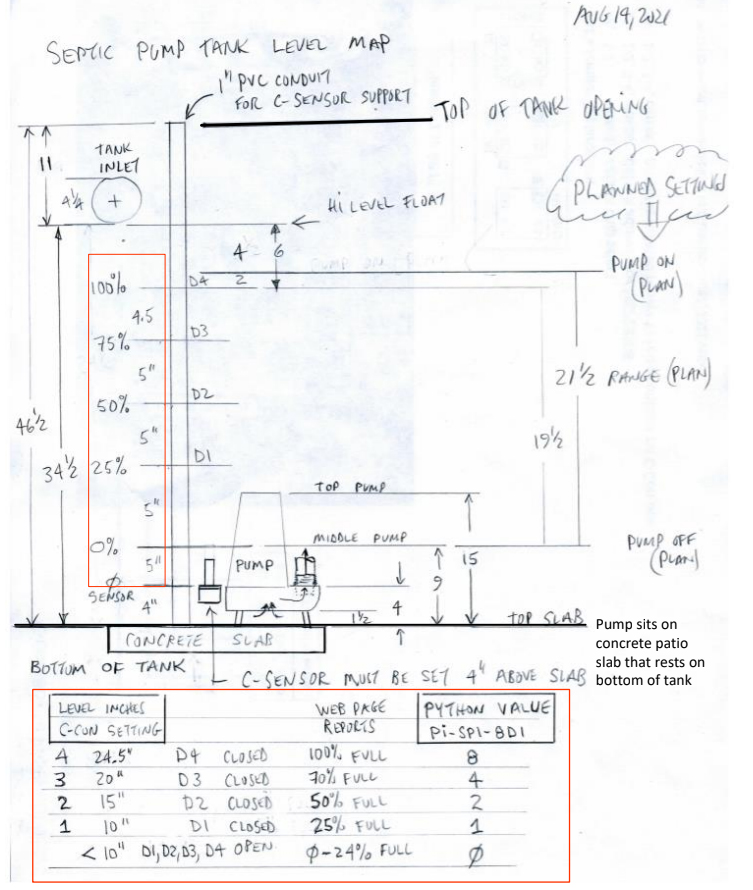 AUG 19, 2021
SEPTIC PUMP TANK LEVEL MAP
1" PVC CONDUIT
FOR C-SENSOR SUPPORT
TOP OF TANK OPENING
11
TANK
INLET
4 1/4
+
HI LEVEL FLOAT
PLANNED SETTINGS
4 - 6
PUMP ON
(PLAN)
100%
D4
2
4.5
75%
D3
5"
21 1/2 RANGE (PLAN)
50%
D2
46 1/2
5"
19 1/2
34 1/2
25%
D1
5"
TOP PUMP
0%
MIDDLE PUMP
PUMP OFF
(PLAN)
5"
PUMP
15
9
Ø
SENSOR
4"
4
1 1/2
TOP SLAB
Pump sits on
concrete patio
slab that rests on
bottom of tank
CONCRETE SLAB
BOTTOM OF TANK
C-SENSOR MUST BE SET 4" ABOVE SLAB
LEVEL INCHES
C-CON SETTING
WEB PAGE
REPORTS
PYTHON VALUE
Pi-SPI-8DI
4 24.5" D4 CLOSED 100% FULL 8
3 20" D3 CLOSED 70% FULL 4
2 15" D2 CLOSED 50% FULL 2
1 10" D1 CLOSED 25% FULL 1
< 10" D1, D2, D3, D4 OPEN Ø-24% FULL Ø